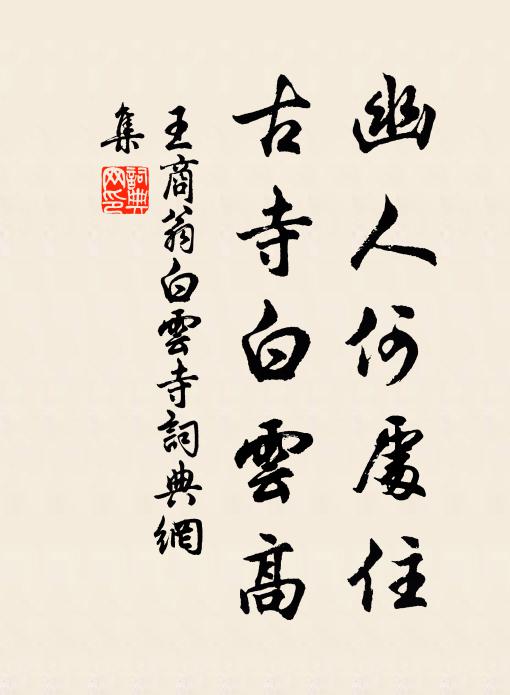 幽人何處住
古寺白雲高
王商翁白雲寺詞典網
集
詞典
网印